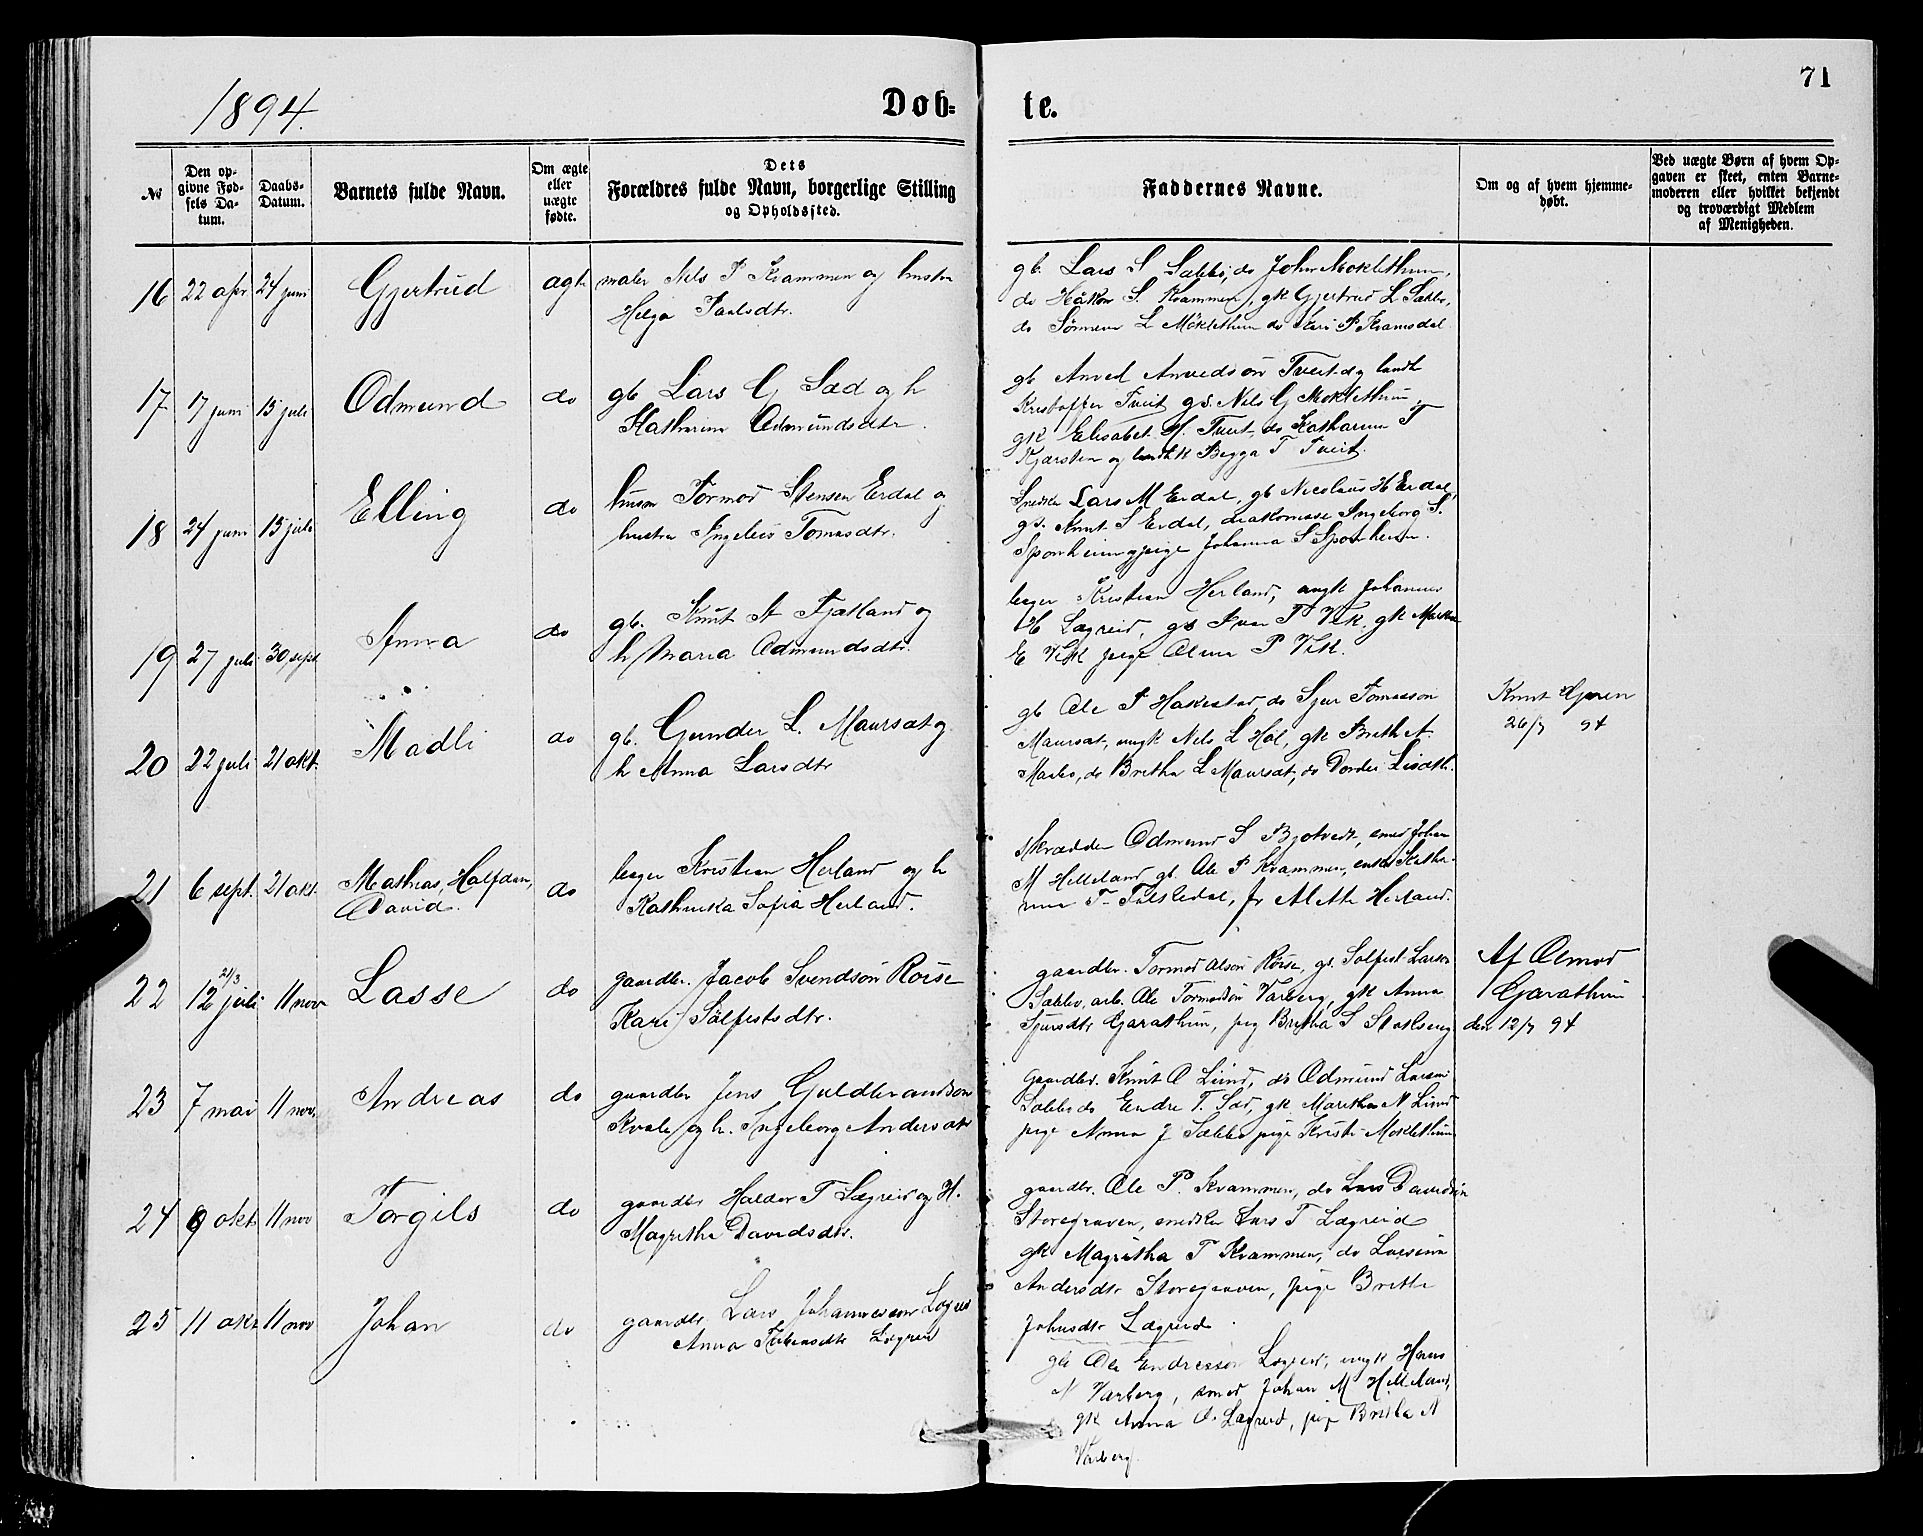 71
1894.
Døb- te.
№
Den op-
givne Fød-
sels Da-
tum.
Daabs-
Datum.
Barnets fulde Navn.
Om ægte
eller
uægte
fødte.
Dets
Forældres fulde Navn, borgerlige Stilling
og Opholdssted.
Faddernes Navne.
Om og af hvem hjemme-
døbt.
Ved uægte Børn af hvem Op-
gaven er skeet, enten Barne-
moderen eller hvilket bekjendt
og troværdigt Medlem
af Menigheden.
16 22 apr 24 juni Gjertrud ægte
maler Nels P Kvammen og hustru
Helga Paulsdtr.
gb. Lars S Sæbbø, do John Moklethun,
do Håkon S. Kvammen, gk Gjertrud L Sæbbø,
do L Moklethun do Kari P Kvamsdal
17 17 juni 15 juli Odmund do
gb Lars G Sæd og h
Katharina Odmundsdtr.
gb Anved Anvedson Tveit og landh
Kristoffer Tveit gs. Nils G Moklethun,
gk Elisabet H. Tveit, do Katharina T
Kjærstein og Begga T Tveit.
18 24 juni 15 juli Elling do
husm Tormod Stensen Erdal og
hustru Ingeleiv Tomasdtr.
Snedker Lars M Erdal, gb Nicolaus H Erdal
gs. Knut S Erdal, diakonisse Ingeborg S.
Sponheim, pige Johanna S Sponheim.
19 27 juli 30 sept Anna do
gb. Knut A Fjætland og
h Maria Odmundsdtr.
læger Kristian Herland, ungk Johannes
H Lægreid, gs Ivar P Vik, gk Martha
E Vik pige Olina P Vik.
20 22 juli 21 okt. Madli do
gb. Gunder L. Maursæt og
h Anna Larsdtr
gb Ole P Hakestad, do Sjur Tomasson
Maursæt, ungk Nils L Hol, gk Brith A.
Maabø, do Bretha L Maursæt, do Dordei Liseth.
Knut Garen
26/7 94
21 6 sept. 21 okt. Mathias, Halfdan,
David. do
læger Kristian Herland og h
Kathinka Sofia Herland.
Skrædder Odmund S Bjotvedt, smed Johan
M Helleland gb. Ole P Kvammen, enke Katha-
rina T. , fr Alette Herland.
22 21/3
12 juli 11 nov Lasse do
gaardbr. Jacob Svendson Røise
Kari Sølfestsdtr.
gaardbr. Tormod Olson Røise, gs. Solfest Larson
Sæbbø, arb. Ole Tormodson Varberg, gk Anna
Sjursdtr Garathun, pig Britha S Stokseng
Af Olmod
Garathun
den 12/7 94
23 7 mai 11 nov. Andreas do
gaardbr Jens Guldbrandson
Kvale og h. Ingeborg Andersdtr
Gaardbr. Knut O Lund, do Odmund Larson
Sæbbø do Endre T. Sæd, gk Maritha N Lund
pige Anna J Sæbbø pige Kristi Moklethun
24 9 okt 11 nov Torgils do
gaardbr Haldor T Lægreid og H.
Magritha Davidsdtr.
gaardbr. Ole P. Kvammen, do Lars Davidson
Storegraven, snedker Lars T Lægreid
gk Magritha T Kvammen, do Larsina
Andersdtr Storegraven, pige Britha
Johnsdtr Lægreid.
25 11 okt 11 nov Johan do
gaardbr Lars Johannesson Lægreid
Anna Lægreid
gb Ole Endresson Lægreid, ungk Hans
N Varberg, smed Johan M Helleland,
gk Anna O. Lægreid, pige Britha N
Varberg